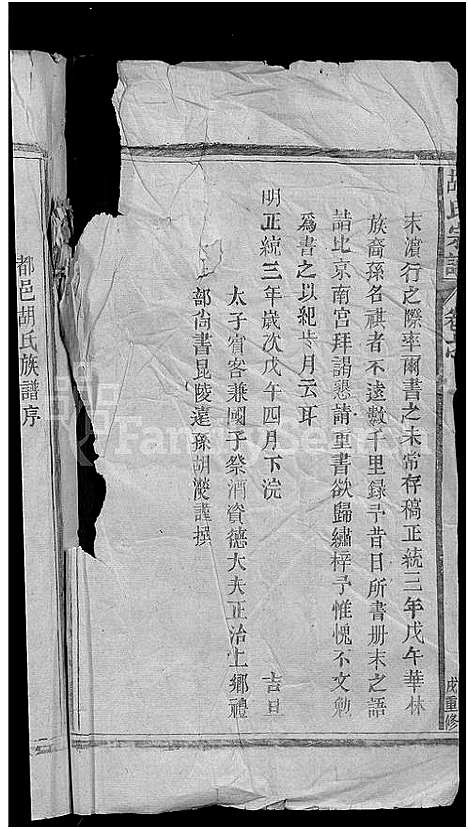 胡氏宗譜 卷
戌重修
末濵行之際率爾書之未常存稿正統三年戊午華林
族裔孫名祺者不遠數千里錄予昔日所書册末之語
詣北京南宫拜謁懇請重書欲歸繡梓予惟愧不文勉
爲書之以紀歲月云耳
明正統三年歲次戊午四月下浣 吉旦
太子賓客兼國子祭酒資德大夫正治上鄉禮
部尙書昆陵遠孫胡濙謹撰
都邑胡氏族譜序
FamilySearch